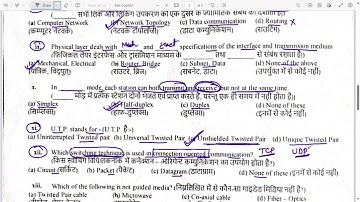 सभी लिंक और लिंकिंग उपकरण को एक दूसरे के
(a) Computer Network (b) Network Topology (c) Data communication (d) Routing
(कम्प्यूटर नेटवर्क) (नेटवर्क टोपोलॉजी) (डाटा कम्युनिकेशन) (राउटिंग)
ix. Physical layer deals with Mech and elect specifications of the interface and transmission medium
(फिजिकल लेयर इंटरफेस और ट्रांसमिशन माध्यम के तथा से संबंध रखता है)
(a) Mechanical, Electrical (b) Router, Bridge (c) Subnet, Data (d) None of the above
(यांत्रिक, विद्युत) (राउटर, ब्रिज) (सबनेट, डाटा) (उपर्युक्त में से कोई नहीं)
x. In mode, each station can both transmit and receive but not at the same time
मोड में प्रत्येक स्टेशन दोनों भेजते एवं प्राप्त करते हैं, परन्तु एक ही समय में नहीं होता है।
(a) Simplex (b) Half-duplex (c) Duplex (d) None of these
(सिम्प्लेक्स) (हाफ-डुप्लेक्स) (डुप्लेक्स) (इनमें से कोई नहीं)
xi. U.T.P. stands for-(U.T.P. है-)
(a) Uninterrupted Twisted pair (b) Universal Twisted Pair (c) Unshielded Twisted Pair (d) Unique Twisted Pair
xii. Which switching technique is used in connection oriented communication? TCP UDP
(किस स्वीचिंग में कनेक्शन - ओरिएंटेड कम्युनिकेशन का उपयोग होता है?)
(a) Circuit (सर्किट) (b) Packet (पैकेट) (c) Datagram (डाटाग्राम) (d) None of these (इनमें से कोई नहीं)
xiii. Which of the following is not guided media? निम्नलिखित में से कौन-सा गाइडेड मिडिया नहीं है?
(a) Twisted Pair cable (b) Microwave (c) Co-axial cable (d) Fiber - Optics